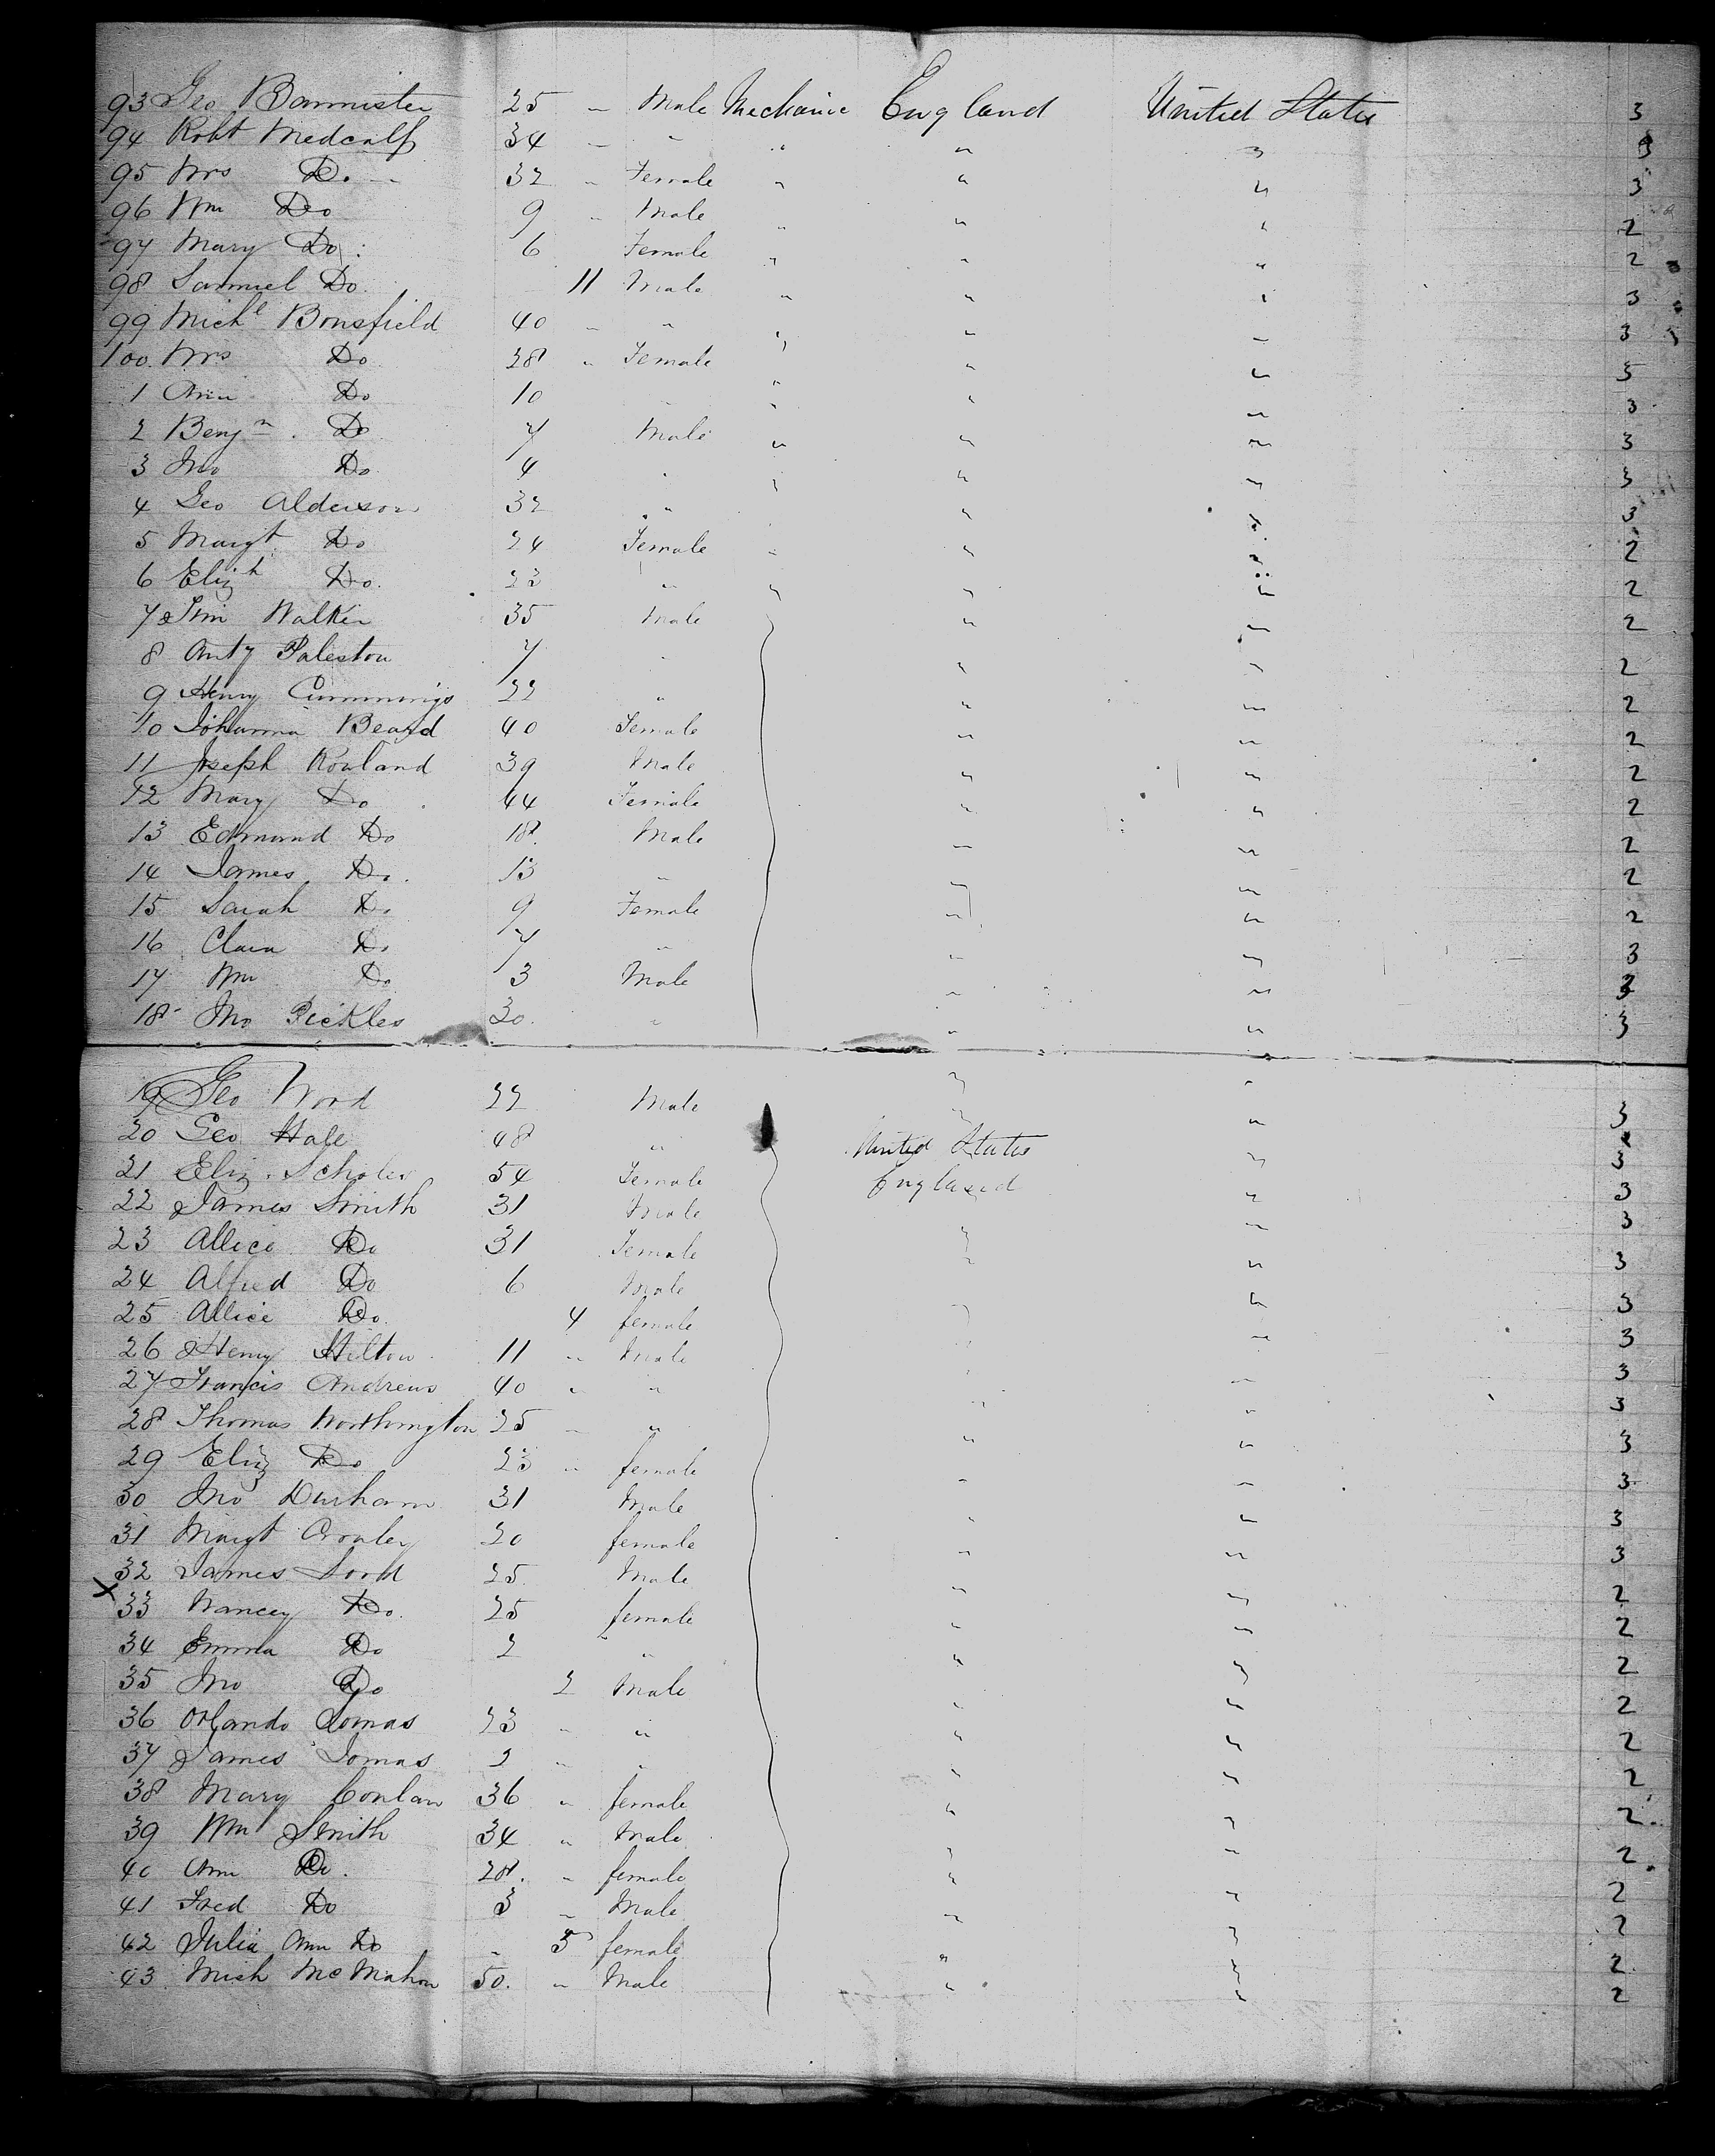 93 Geo Bannister 25 " Male Mechanic England United States 3
94 Robt Medcalf 34 " " " " " 3
95 Mrs Do. 32 " Female " " " 3
96 Wm Do 9 " Male " " " 2
97 Mary Do 6 Female " " " 2
98 Samuel Do. 11 Male " " " 3
99 Michl Bousfield 40 " " " " " 3
100. Mrs Do 28 " Female " " 3
1 Ann Do 10 " " " " 3
2 Benjn. Do 7 Male " " " 3
3 Jno Do 4 " " " " 3
4 Geo Alderson 32 " " " 3
5 Margt Do 24 Female " " " 2
6 Elizh Do. 23 " " " " 2
7 Walker 35 Male " " 2
8 Anty 7 " " " 2
9 Henry Cummings 22 " " " 2
10 Johanna Beard 40 Female " " 2
11 Joseph Rowland 39 Male " " 2
12 Mary Do 44 Female " " 2
13 Edmund Do 18 Male " " 2
14 James Do. 13 " " " 2
15 Sarah Do 9 Female " " 2
16 Clara Do 7 " " " 3
17 Wm Do 3 Male " " 3
18 Jno Pickles 30. " " " 3
19 Geo Wood 22 Male " " 3
20 Geo Hale 48 " United States " 3
21 Eliz. Scholes 54 Female England " 3
22 James Smith 31 Male " 3
23 Allice Do 31 Female " " 3
24 Alfred Do 6 Male " " 3
25 Allice Do. 4 female " " 3
26 Henry Hilton 11 " Male " " 3
27 Francis Andrews 40 " " " " 3
28 Thomas Worthington 25 " " " " 3
29 Eliz Do 23 " female " " 3
30 Jno Durham 31 Male " " 3
31 Margt Crowley 20 female " " 3
32 James Lord 25. Male " " 2
X 33 Nancey Do. 25 female " " 2
34 Emma Do 2 " " " 2
35 Jno Do 2 Male " " 2
36 Orlando Lomas 23 " " " " 2
37 James Lomas 2 " " " " 2
38 Mary Conlan 36 " female " " 2
39 Wm Smith 34 " Male " " 2
40 Ann Do. 28. " female " " 2
41 Fred Do 3 " Male " " 2
42 Julia Ann Do " 5 female " " 2
43 Mich McMahon 50. " Male " " 2